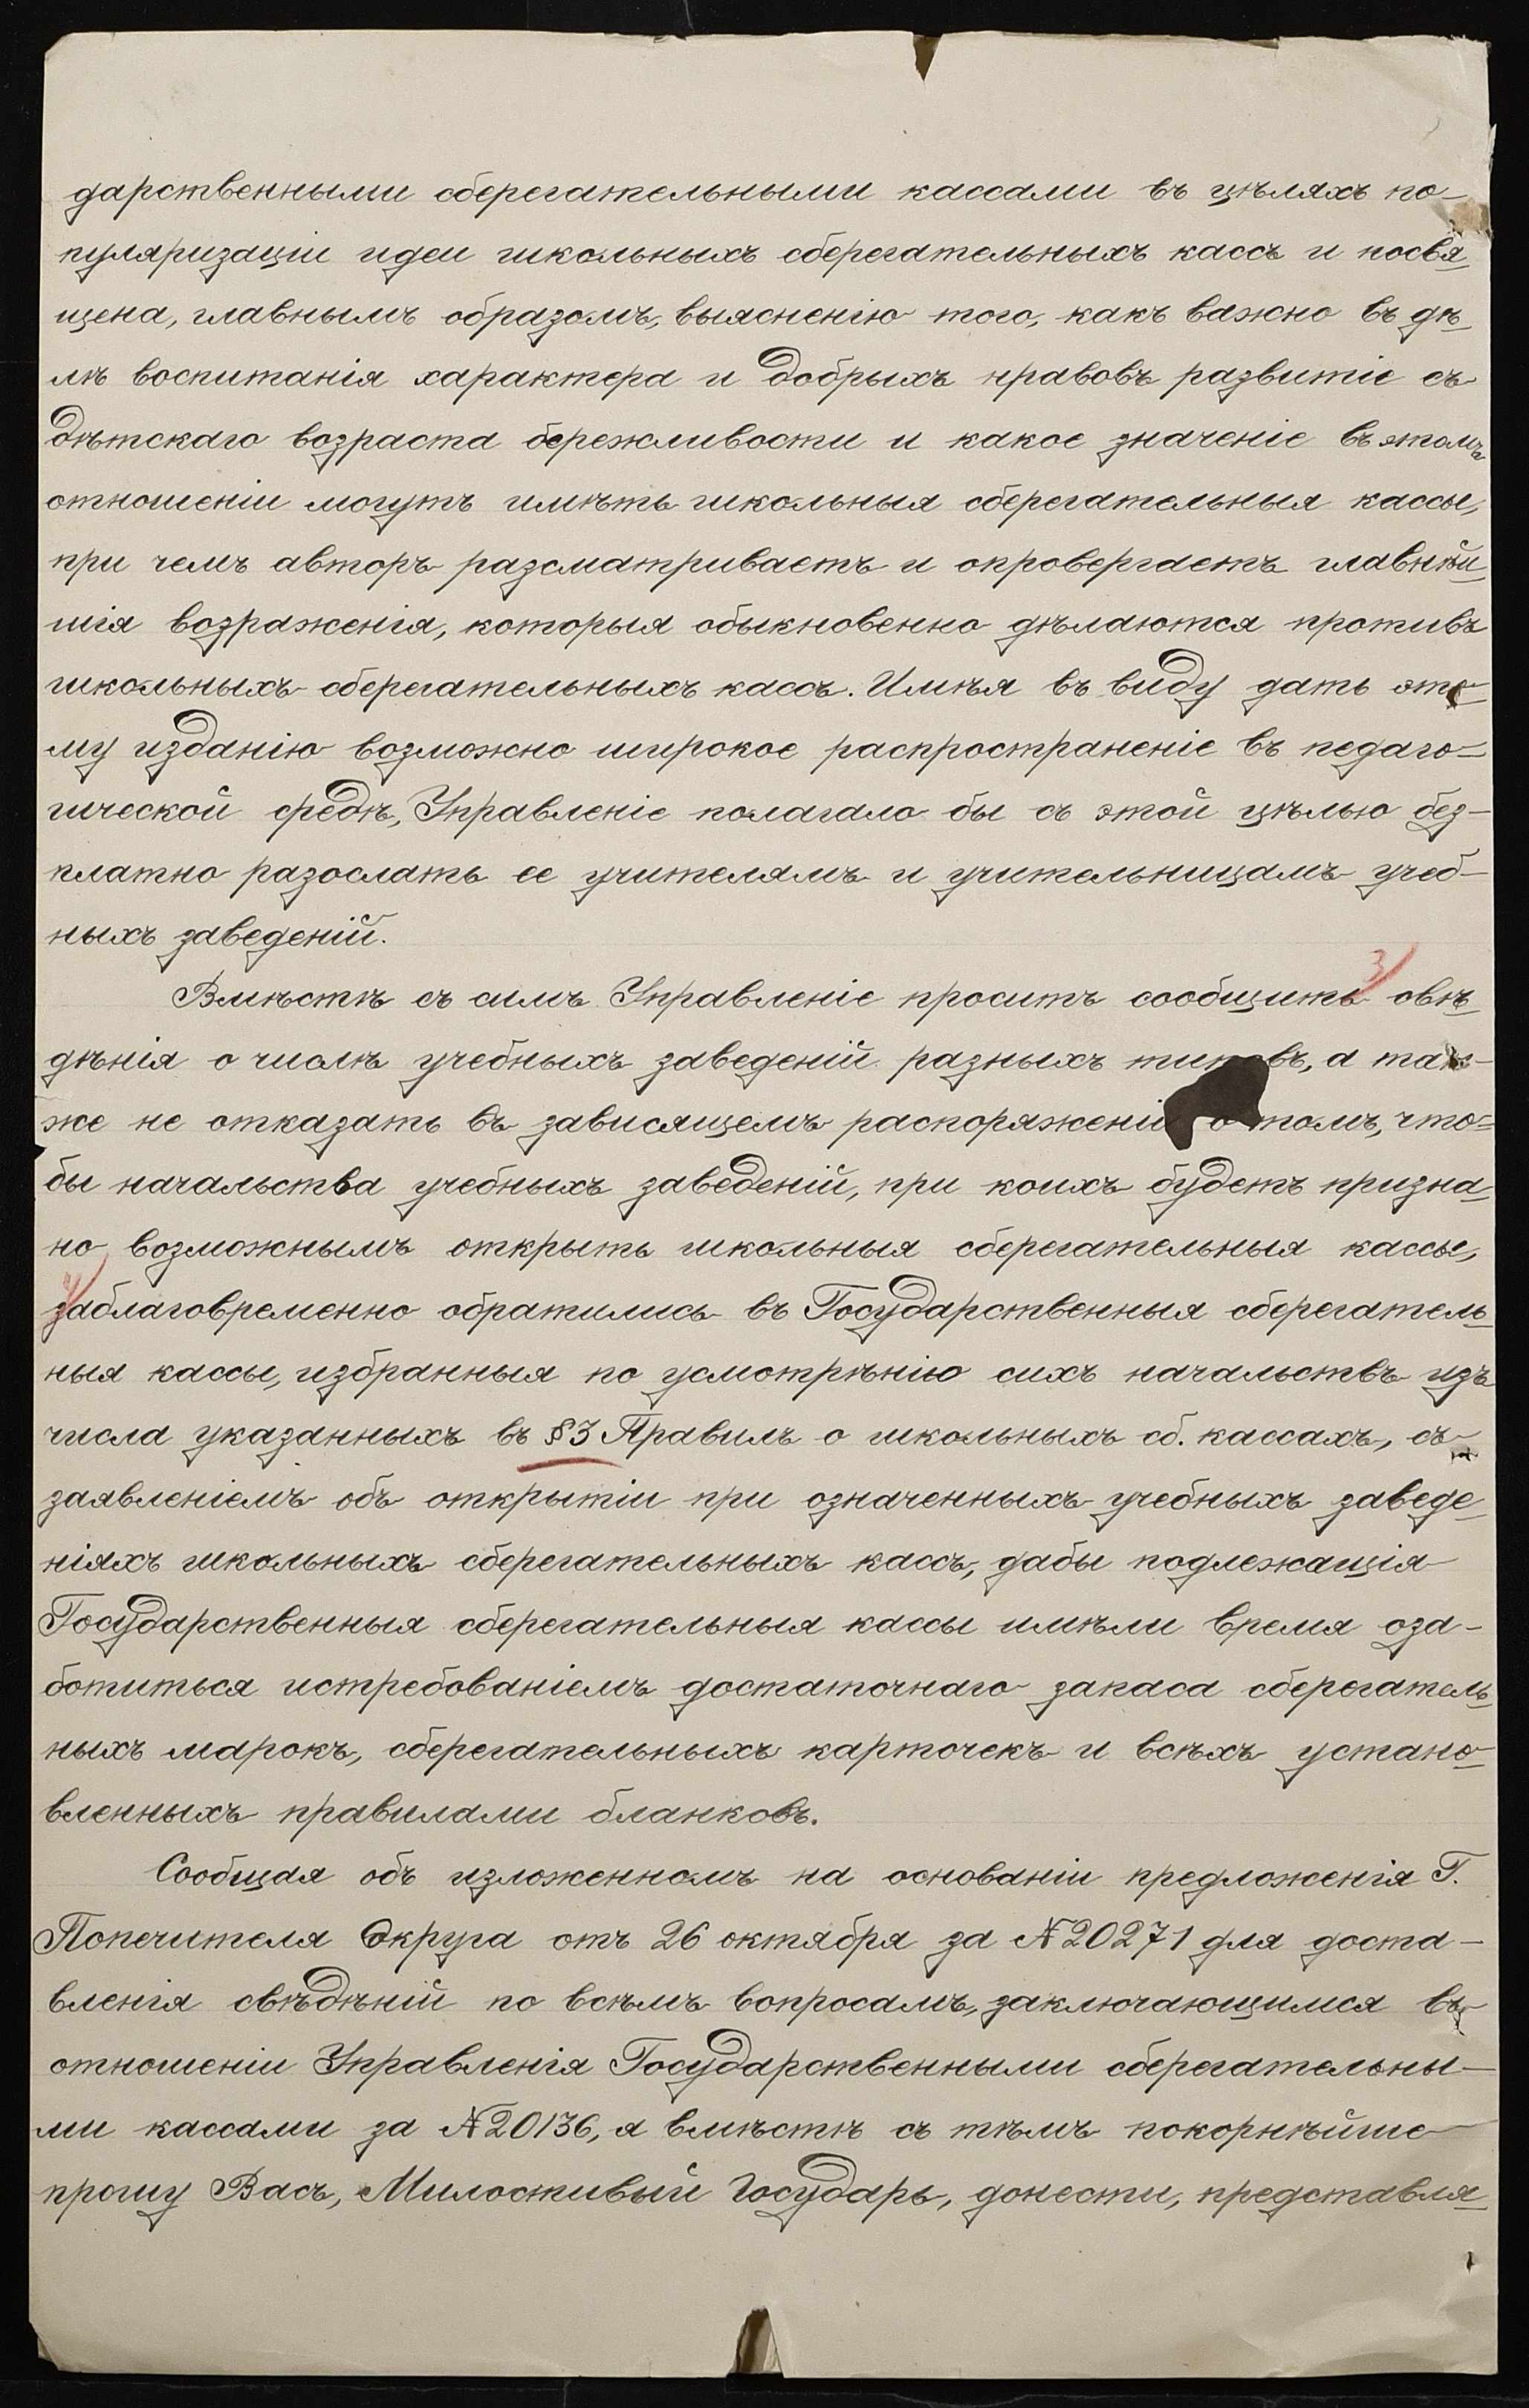 дарственными сберегательными кассами въ цѣляхъ по-
пуляризаціи идеи школьныхъ сберегательныхъ кассъ и посвя
щена, главнымъ образомъ, выясненію того, какъ важно въ дѣ
лѣ воспитанія характера и добрыхъ нравовъ развитіе съ
дѣтскаго возраста бережливости и какое значеніе въ этомъ
отношеніи могутъ имѣть школьныя сберегательныя кассы,
при чемъ авторъ разсматриваетъ и опровергаетъ главнѣй
шія возраженія, которыя обыкновенно дѣлаются противъ
школьныхъ сберегательныхъ кассъ. Имѣя въ виду дать это-
му изданію возможно широкое распространеніе въ педаго-
гической средѣ, Управленіе полагало бы съ этой цѣлью без-
платно разослать ее учителямъ и учительницамъ учеб-
ныхъ заведеній.
3/
Вмѣстѣ съ симъ Управленіе проситъ сообщить свѣ
дѣнія о числѣ учебныхъ заведеній разныхъ типовъ, а так-
же не отказать въ зависящемъ распоряженіи о томъ, что-
бы начальства учебныхъ заведеній, при коихъ будетъ призна
но возможнымъ открыть школьныя сберегательныя кассы,
4/
заблаговременно обратились въ Государственныя сберегатель
ныя кассы, избранныя по усмотрѣнію сихъ начальствъ изъ
числа указанныхъ въ §3 Правилъ о школьныхъ сб. кассахъ, съ
заявленіемъ объ открытіи при означенныхъ учебныхъ заведе
ніяхъ школьныхъ сберегательныхъ кассъ, дабы подлежащія
Государственныя сберегательныя кассы имѣли время оза-
ботиться истребованіемъ достаточнаго запаса сберегатель
ныхъ марокъ, сберегательныхъ карточекъ и всѣхъ устано-
вленныхъ правилами бланковъ.
Сообщая объ изложенномъ на основаніи предложенія Г.
Попечителя Округа отъ 26 октября за №20271 для доста-
вленія свѣдѣній по всѣмъ вопросамъ, заключающимся въ
отношеніи Управленія Государственными сберегательны-
ми кассами за №20136, я вмѣстѣ съ тѣмъ покорнѣйше
прошу Васъ, Милостивый Государь, донести, представля